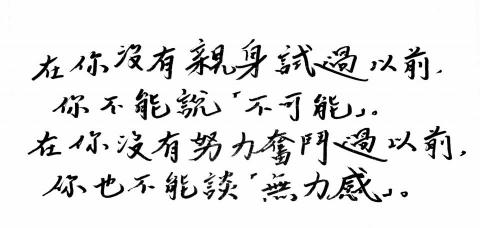 在你沒有親身試過以前，
你不能說「不可能」。
在你沒有努力奮鬥過以前，
你也不能談「無力感」。